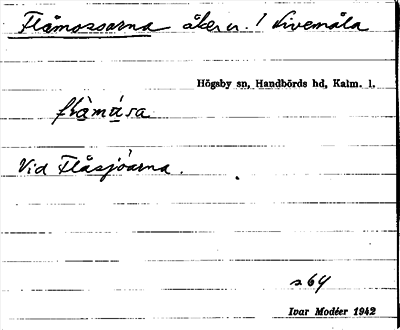 Flåmossarna åker n. / Livemåla
Högsby sn, Handbörds hd, Kalm. l.
flåmåsa
Vid Flåsjöarna.
s 64
Ivar Modéer 1942